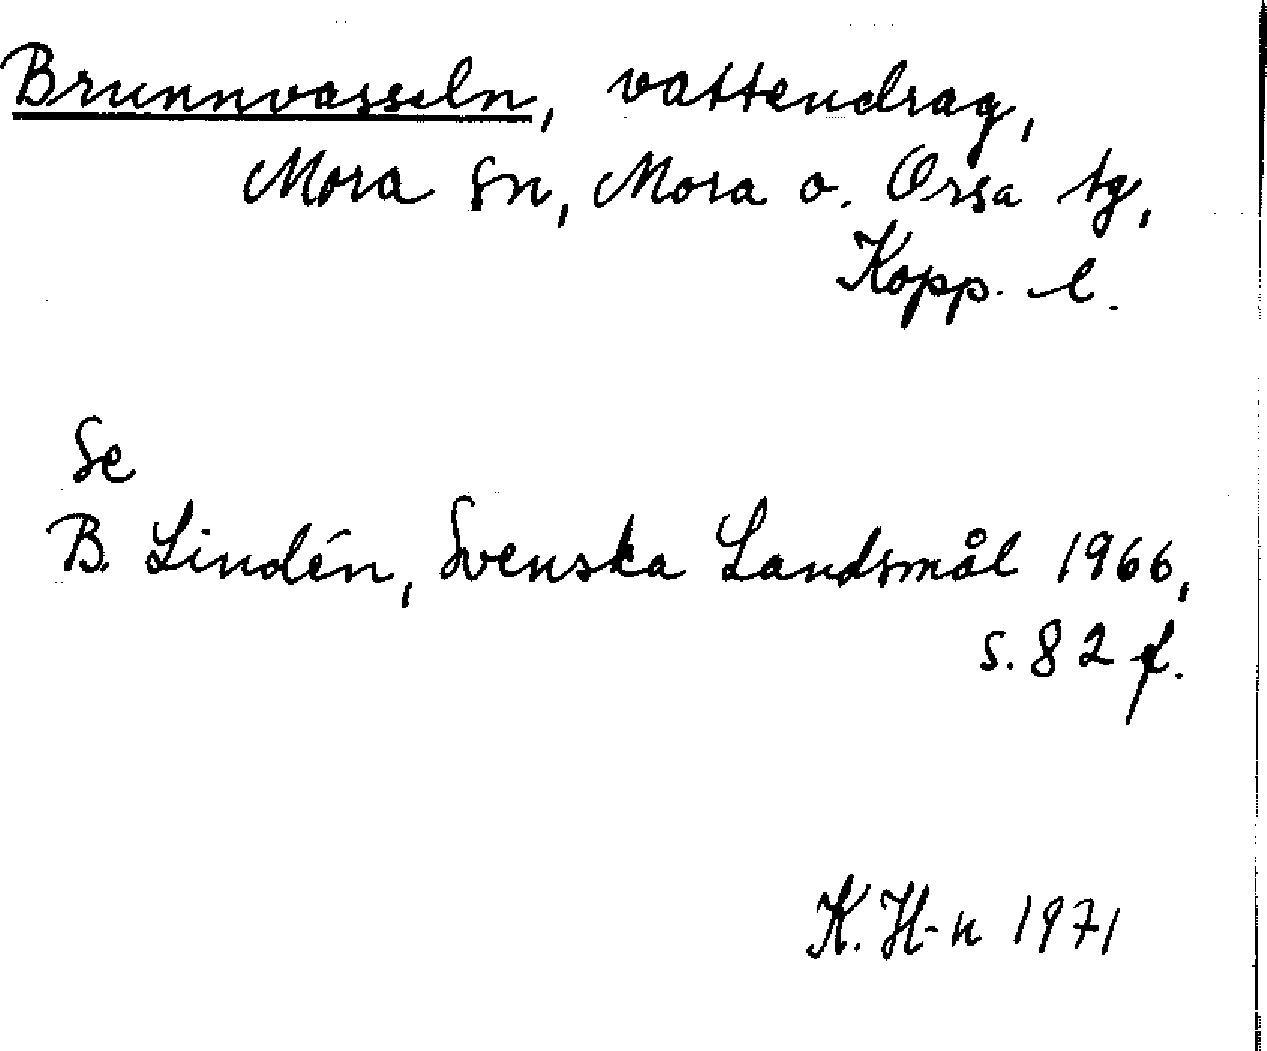 Brunnvasseln, vattendrag,
Mora sn, Mora o. Orsa tg,
Kopp. l.
Se
B. Lindén, Svenska Landsmål 1966,
s. 82 f.
K. H-n 1971